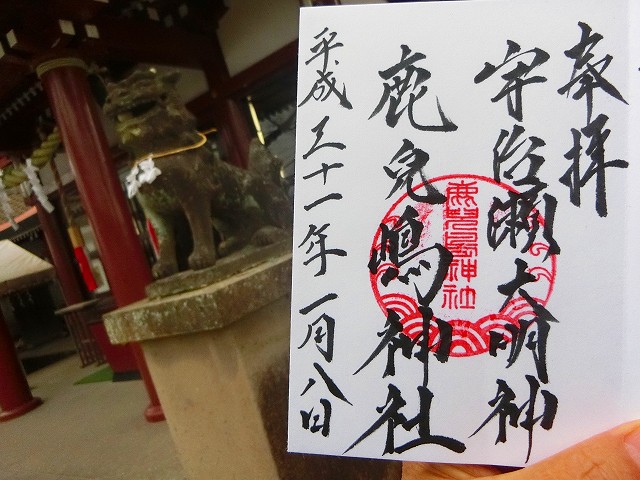 奉拝
宇治瀬大明神
鹿児嶋神社
平成三十一年一月八日
鹿児島神社